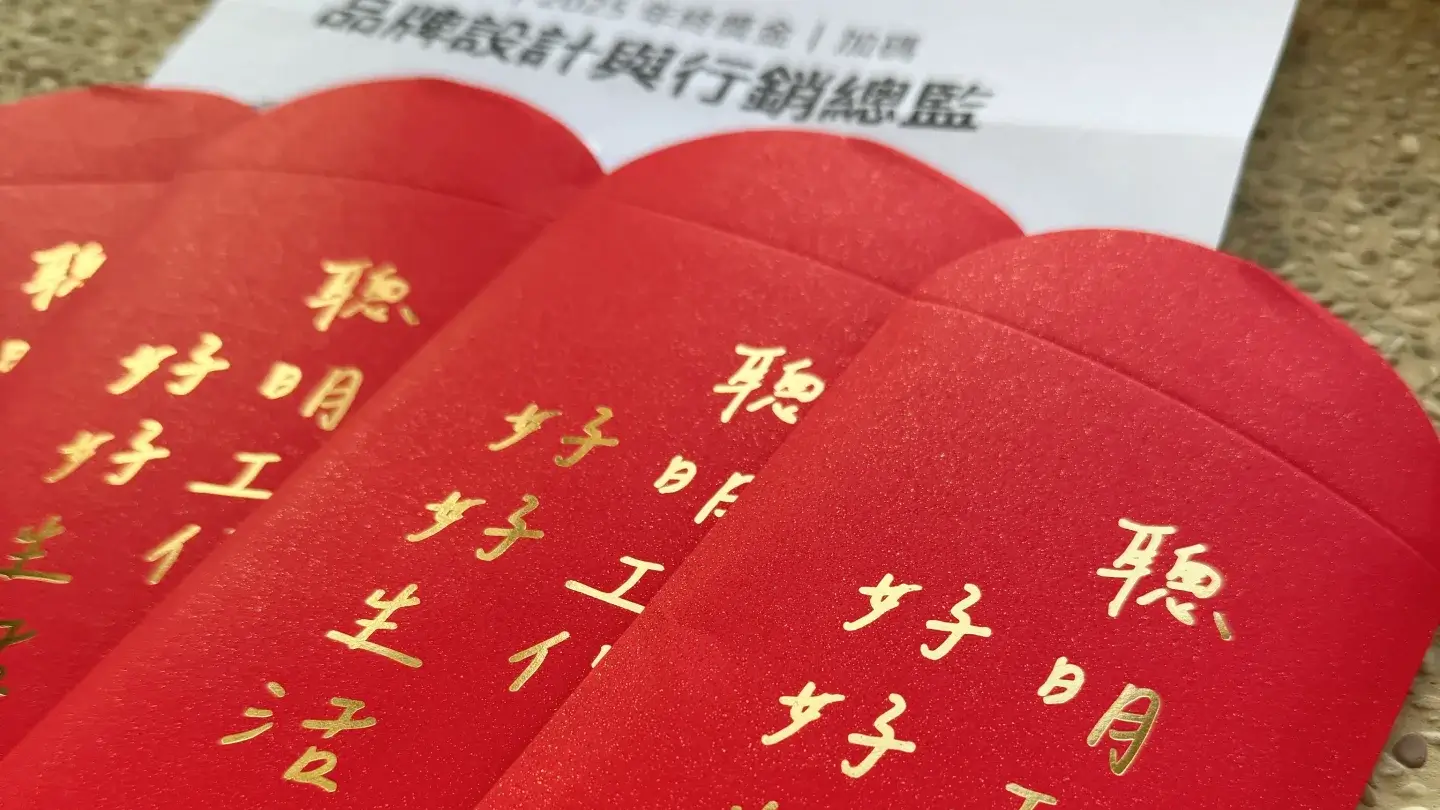 2025 年終獎金 | 加碼
品牌設計與行銷總監
聰
聰明工
好好生
聰明工
好好生活
聰明
好好